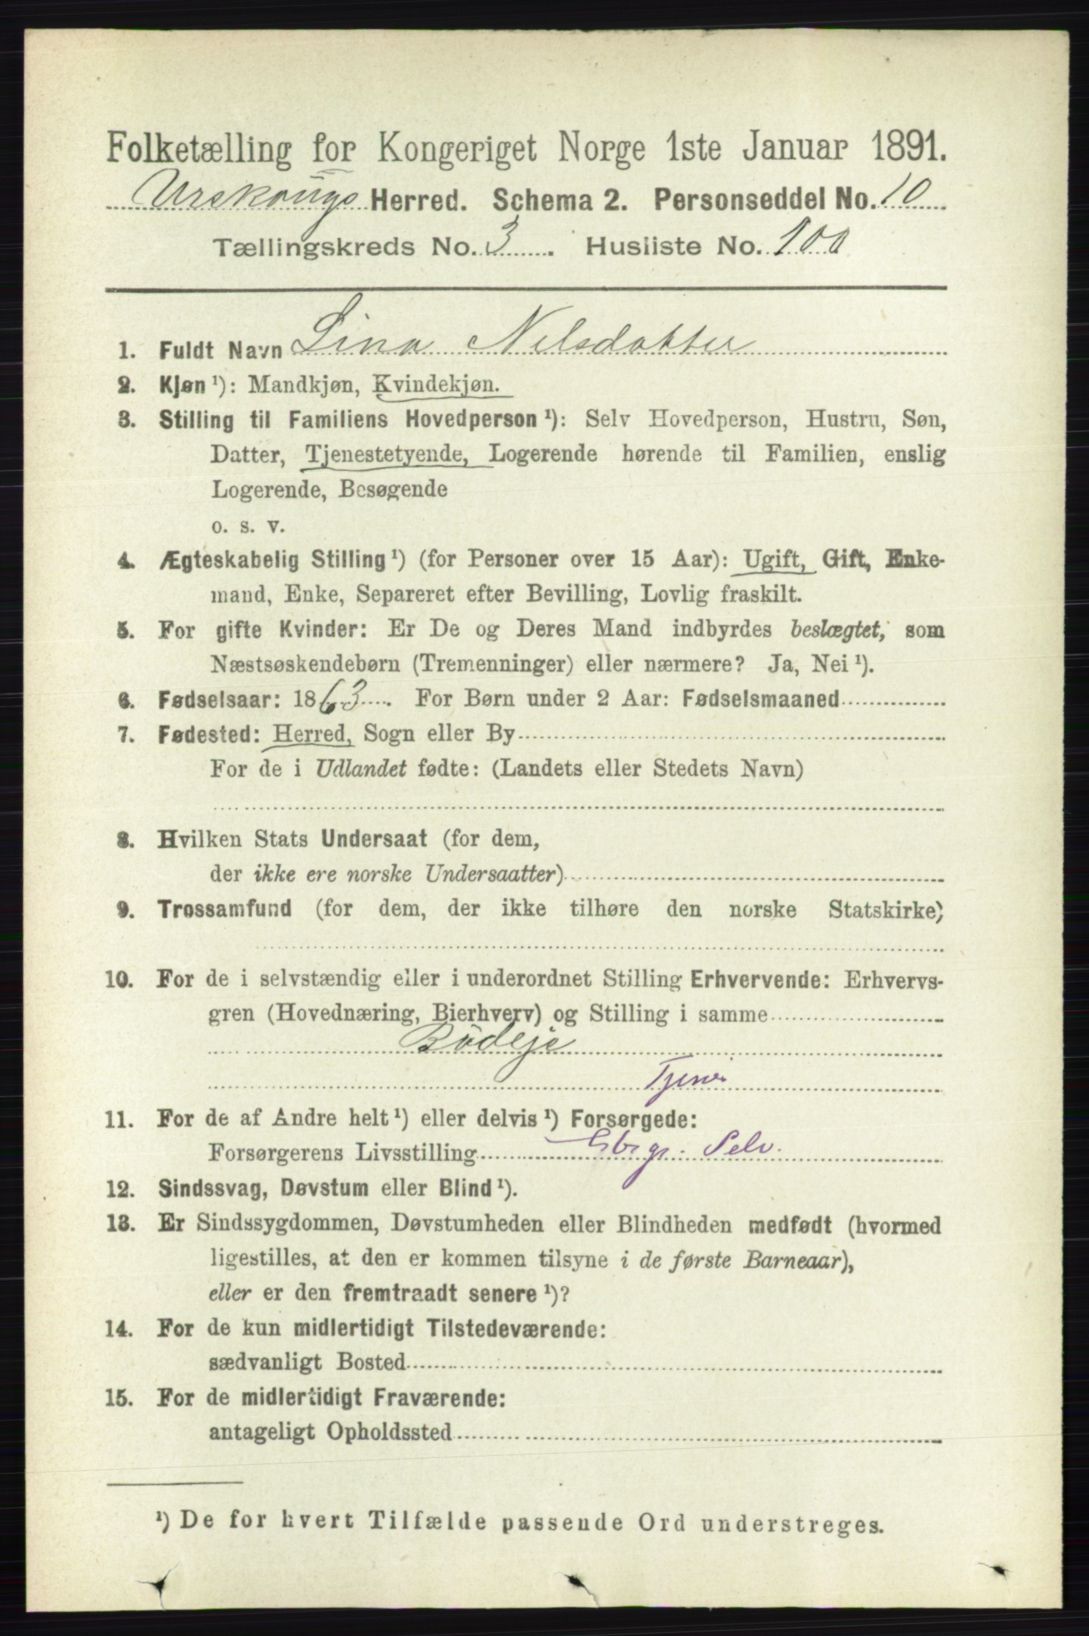 Folketælling for Kongeriget Norge 1ste Januar 1891.
Urskougs Herred. Schema 2. Personseddel No. 10
Tællingskreds No. 3. Husliste No. 100
1. Fuldt Navn Lina Nilsdatter
2. Kjøn ¹): Mandkjøn, Kvindekjøn.
3. Stilling til Familiens Hovedperson ¹): Selv Hovedperson, Hustru, Søn,
Datter, Tjenestetyende, Logerende hørende til Familien, enslig
Logerende, Besøgende
o. s. v.
4. Ægteskabelig Stilling ¹) (for Personer over 15 Aar): Ugift, Gift, Enke-
mand, Enke, Separeret efter Bevilling, Lovlig fraskilt.
5. For gifte Kvinder: Er De og Deres Mand indbyrdes beslægtet, som
Næstsøskendebørn (Tremenninger) eller nærmere? Ja, Nei ¹).
6. Fødselsaar: 1863. For Børn under 2 Aar: Fødselsmaaned
7. Fødested: Herred, Sogn eller By
For de i Udlandet fødte: (Landets eller Stedets Navn)
8. Hvilken Stats Undersaat (for dem,
der ikke ere norske Undersaatter)
9. Trossamfund (for dem, der ikke tilhøre den norske Statskirke)
10. For de i selvstændig eller i underordnet Stilling Erhvervende: Erhvervs-
gren (Hovednæring, Bierhverv) og Stilling i samme
Budeje
Tjener
11. For de af Andre helt ¹) eller delvis ¹) Forsørgede:
Forsørgerens Livsstilling Gbrgr. Selv.
12. Sindssvag, Døvstum eller Blind ¹).
13. Er Sindssygdommen, Døvstumheden eller Blindheden medfødt (hvormed
ligestilles, at den er kommen tilsyne i de første Barneaar),
eller er den fremtraadt senere ¹)?
14. For de kun midlertidigt Tilstedeværende:
sædvanligt Bosted
15. For de midlertidigt Fraværende:
antageligt Opholdssted
¹) De for hvert Tilfælde passende Ord understreges.